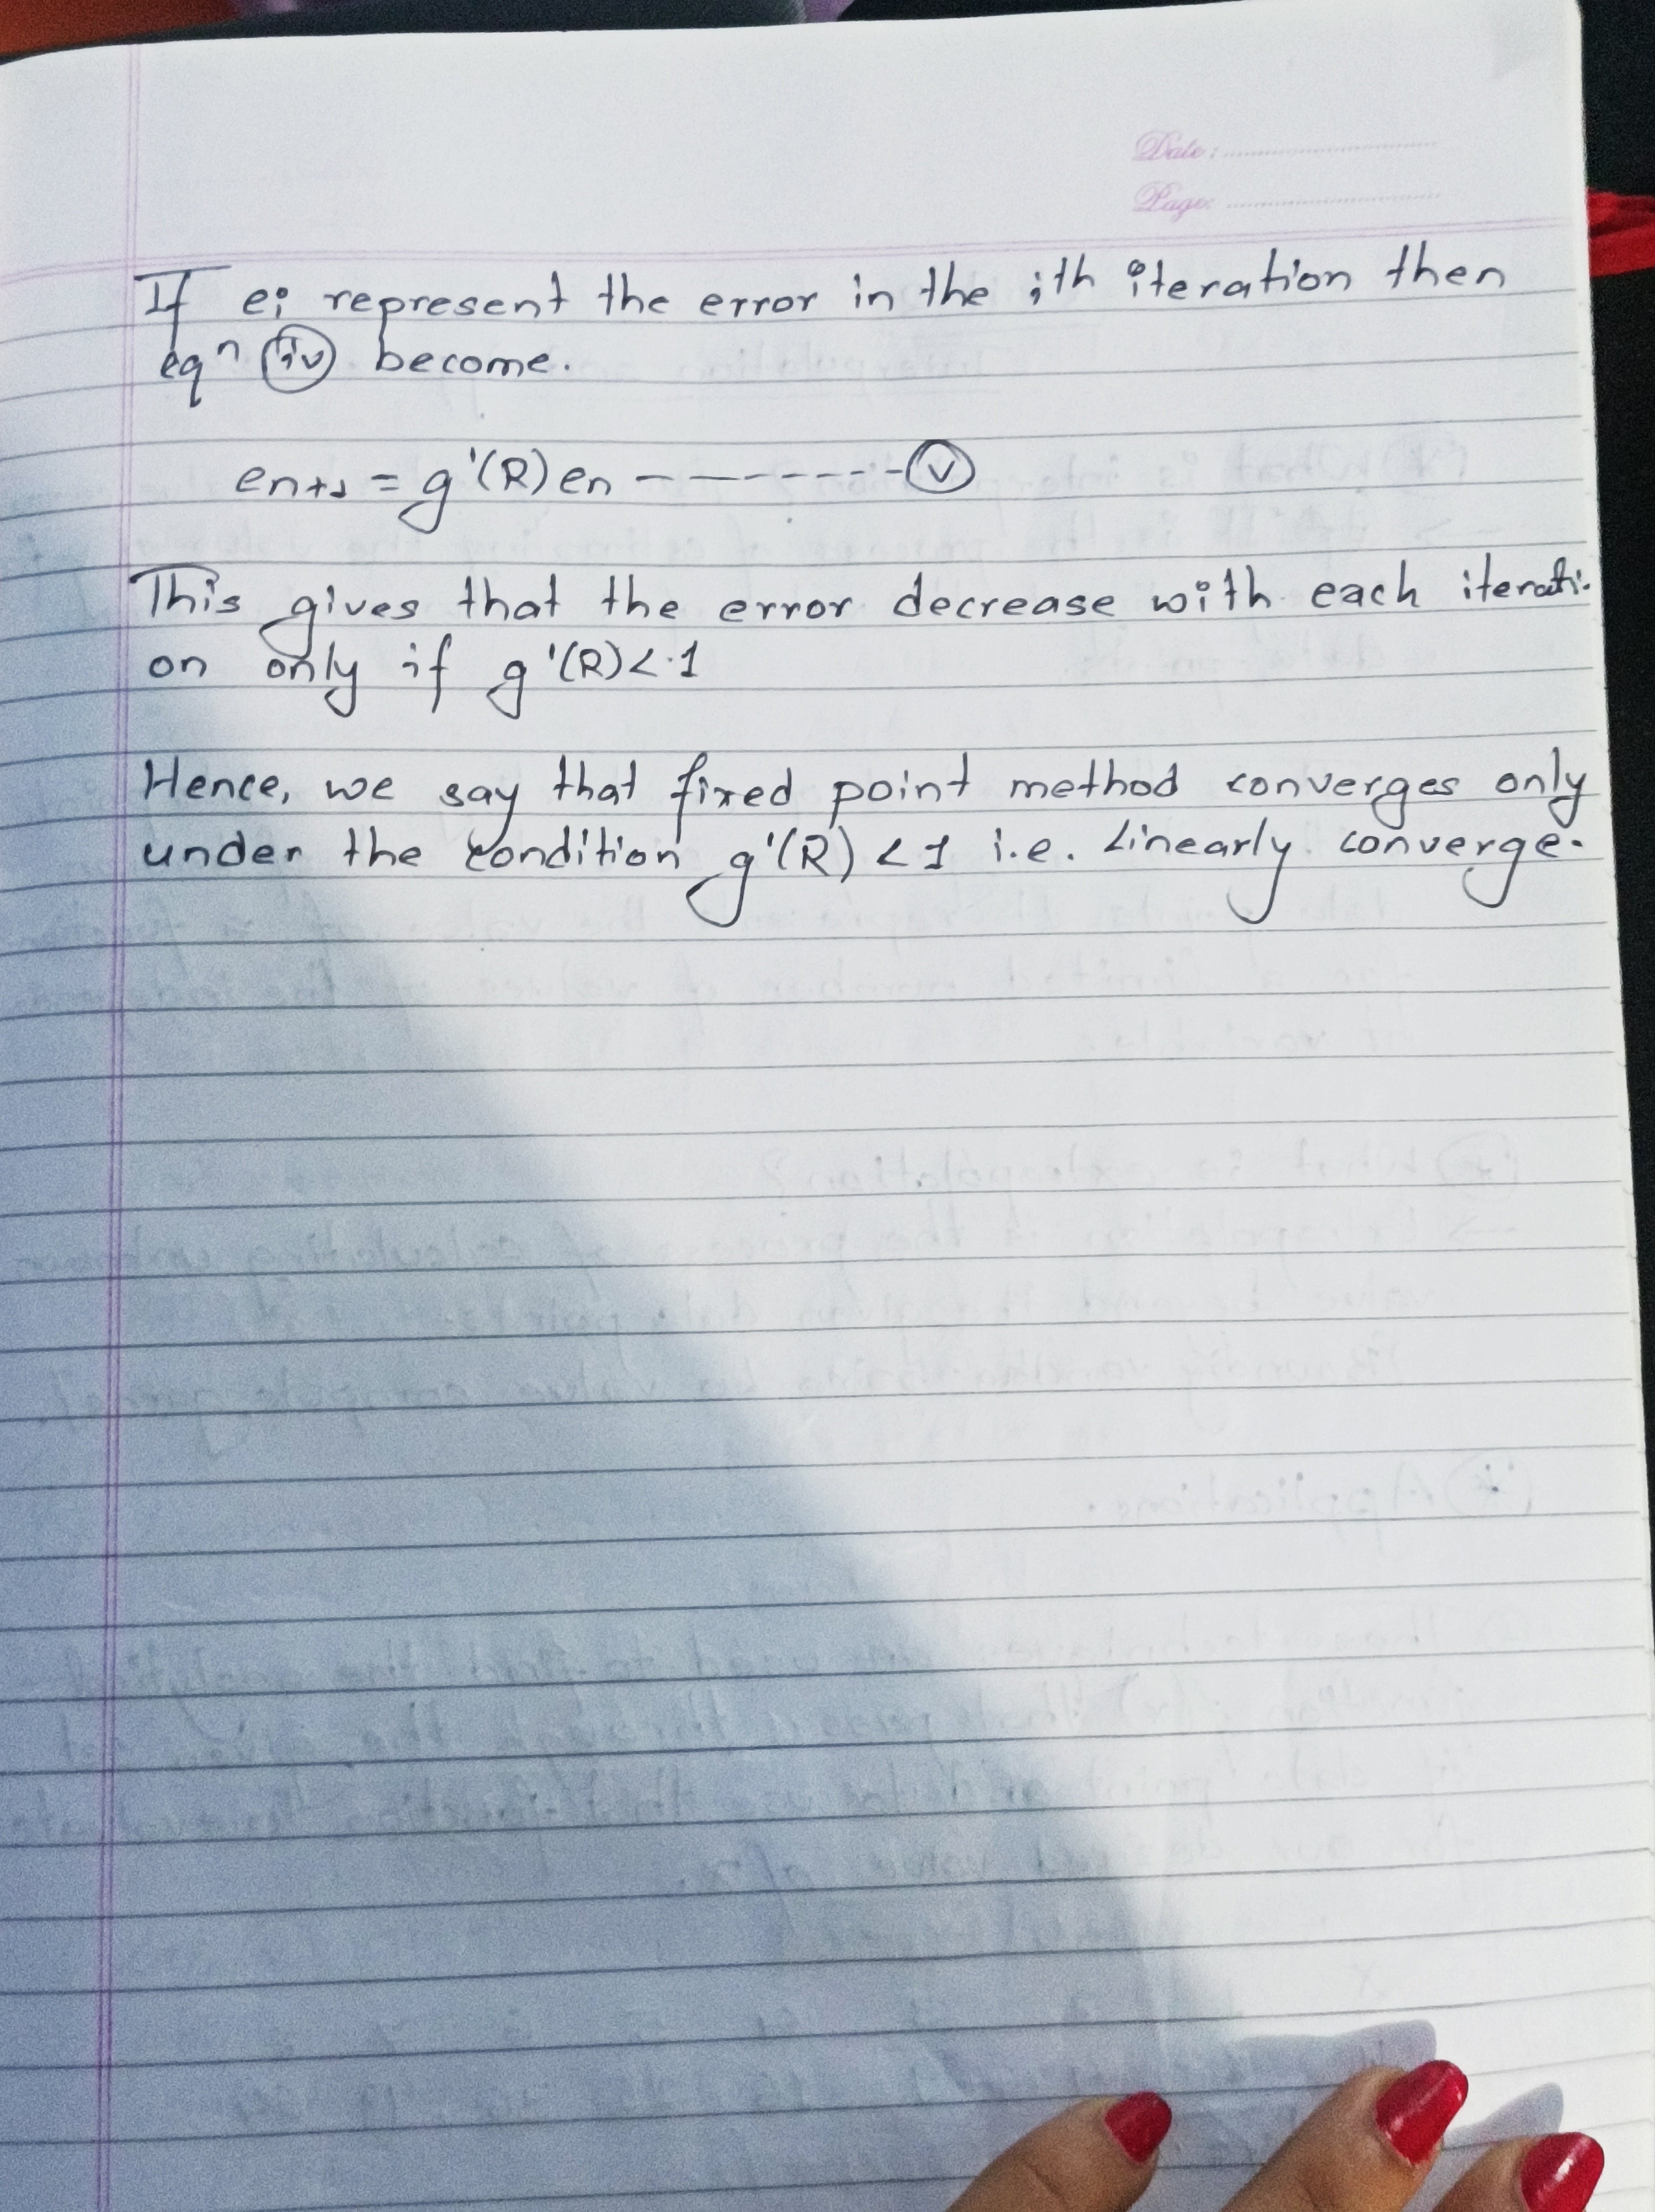 Date:
Page:
If ei represent the error in the ith iteration then
eqn (iv) become.
en+1 = g'(R) en --------- (v)
This gives that the error decrease with each iterati-
on only if g'(R) < 1
Hence, we say that fixed point method converges only
under the condition g'(R) < 1 i.e. Linearly converge.